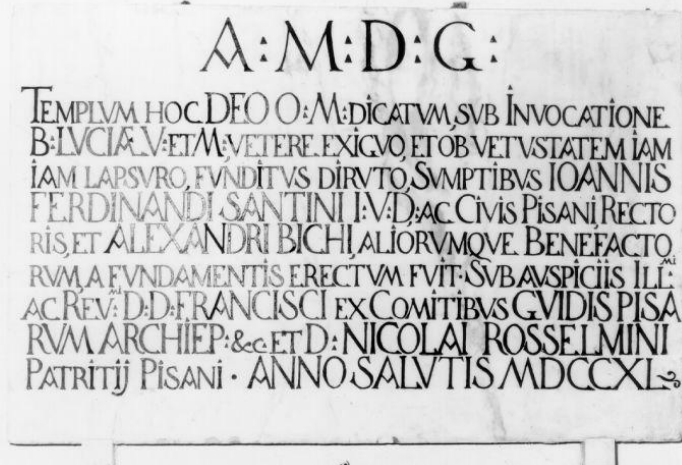 A:M:D:G:
TEMPLVM HOC DEO O:M:DICATVM, SVB INVOCATIONE
B:LVCIÆ V:ET M:VETERE, EXIGVO, ET OB VETVSTATEM IAM
IAM LAPSVRO, FVNDITVS DIRVTO, SVMPTIBVS IOANNIS
FERDINANDI SANTINI I:V:D:AC CIVIS PISANI, RECTO
RIS, ET ALEXANDRI BICHI, ALIORVMQVE BENEFACTO
RVM, A FVNDAMENTIS ERECTVM FVIT. SVB AVSPICIIS ILL:MI
AC REV: D:D:FRANCISCI EX COMITIBVS GVIDIS PISA
RVM ARCHIEP:&c:ET D:NICOLAI ROSSELMINI
PATRITIJ PISANI · ANNO SALVTIS MDCCXL